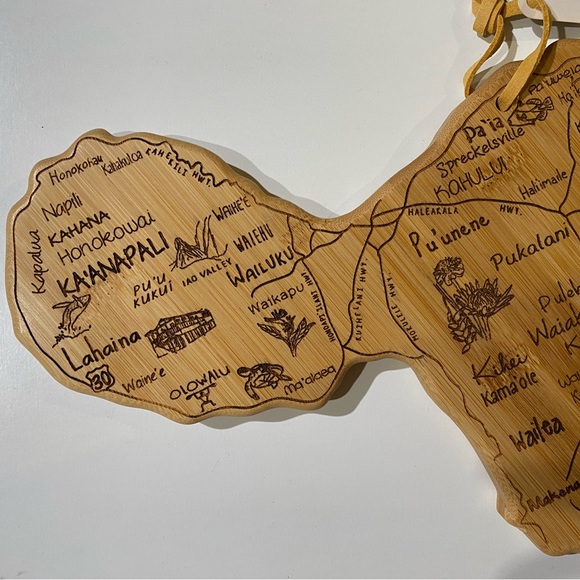 Honokohau
Kahakuloa
KAHEKILI HWY.
Kapalua
Napili
KAHANA
Honokowai
KA'ANAPALI
PU'U
KUKUI
IAO VALLEY
WAIHE'E
WAIEHU
WAILUKU
Waikapu
HONOAPI'ILANI HWY
Lahaina
30
Waine'e
OLOWALU
Ma'alaea
KUIHELANI HWY.
MOKULELE HWY.
HALEAKALA HWY.
Pa'ia
Spreckelsville
KAHULUI
Hali'imaile
Pu'unene
Pukalani
Kihei
Kama'ole
Wailea
Makena